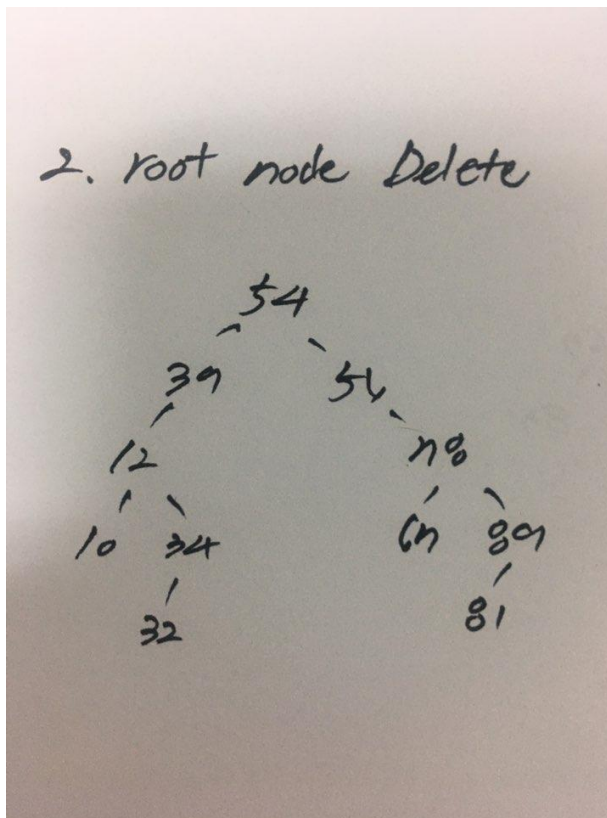 2. root node Delete
54
39 56
12 78
10 34 67 89
32 81